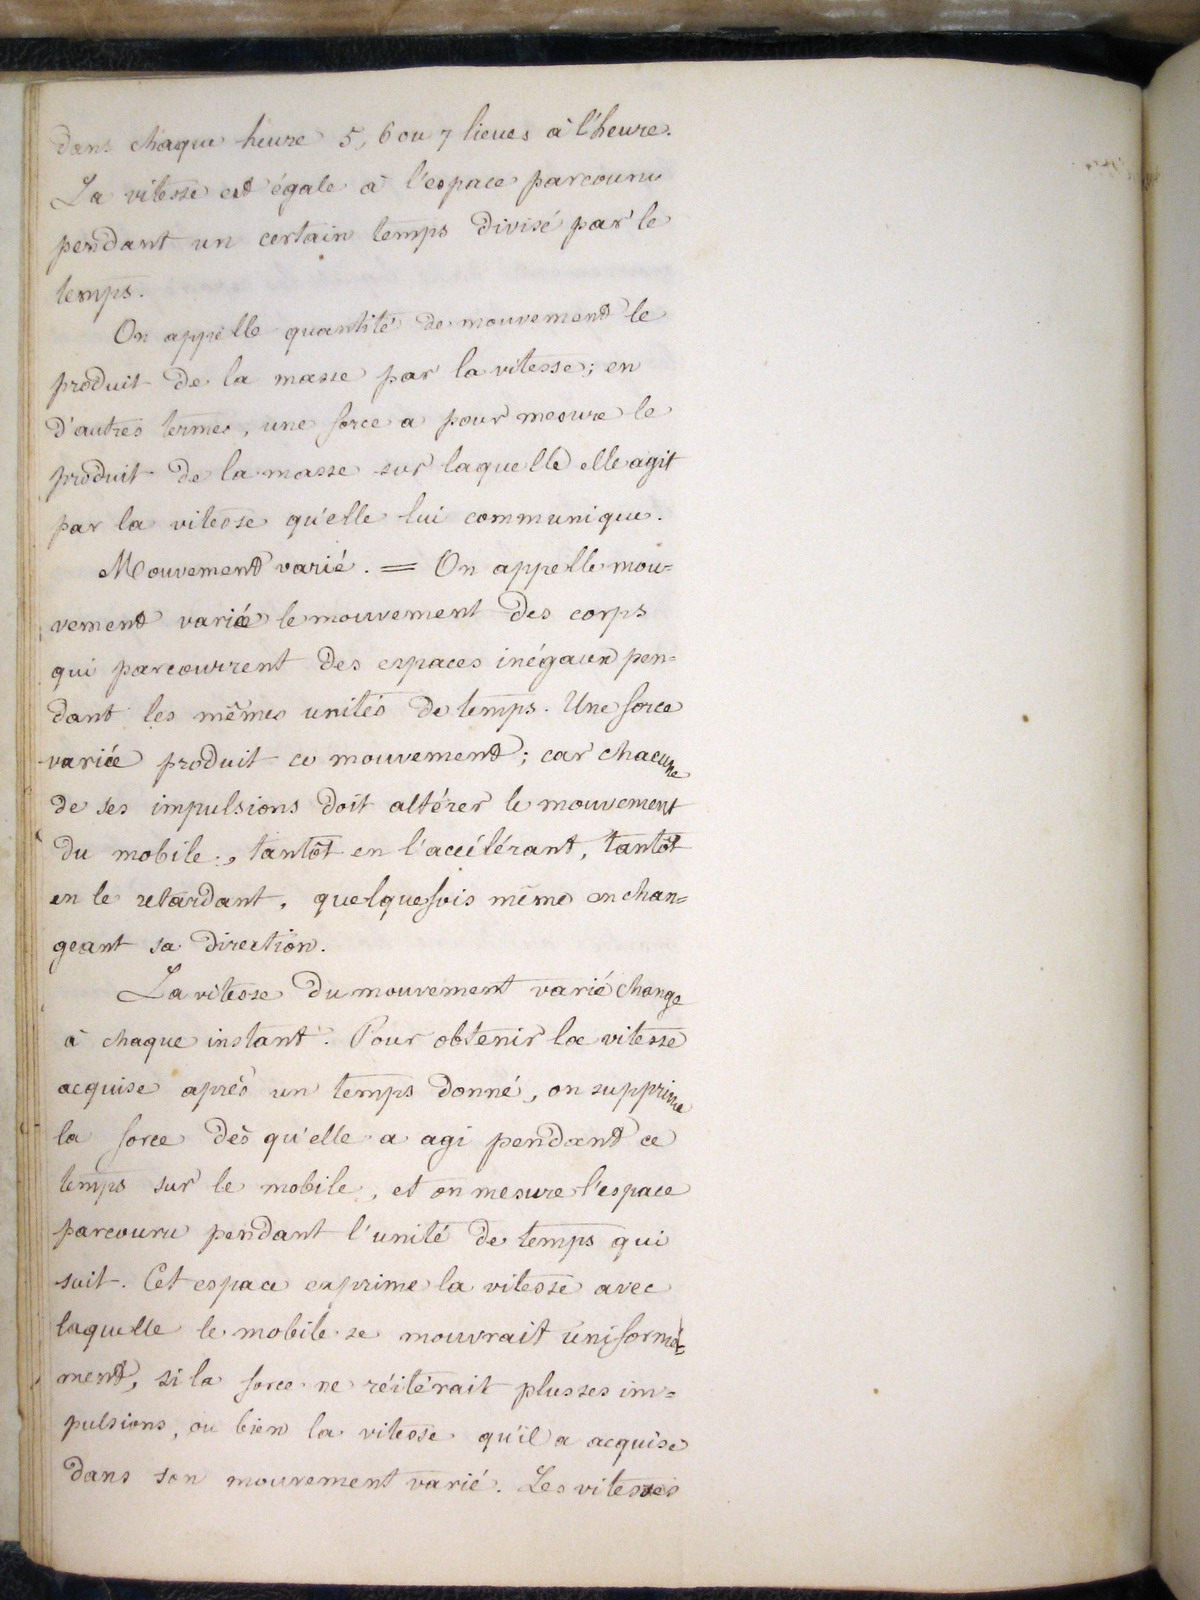 dans chaque heure 5, 6 ou 7 lieues à l'heure.
La vitesse est égale à l'espace parcouru
pendant un certain temps divisé par le
temps.
On appelle quantité de mouvement le
produit de la masse par la vitesse; en
d'autres termes, une force a pour mesure le
produit de la masse sur laquelle elle agit
par la vitesse qu'elle lui communique.
Mouvement varié. = On appelle mou=
vement varié le mouvement des corps
qui parcourrent des espaces inégaux pen=
dant les mêmes unités de temps. Une force
variée produit ce mouvement; car chacune
de ses impulsions doit altérer le mouvement
du mobile, tantôt en l'accélérant, tantôt
en le retardant, quelquefois même en chan=
geant sa direction.
La vitesse du mouvement varié change
à chaque instant. Pour obtenir la vitesse
acquise après un temps donné, on supprime
la force dès qu'elle a agi pendant ce
temps sur le mobile, et on mesure l'espace
parcouru pendant l'unité de temps qui
suit. Cet espace exprime la vitesse avec
laquelle le mobile se mouvrait uniformé=
ment, si la force ne réitérait plus ses im=
pulsions, ou bien la vitesse qu'il a acquise
dans son mouvement varié. Les vitesses